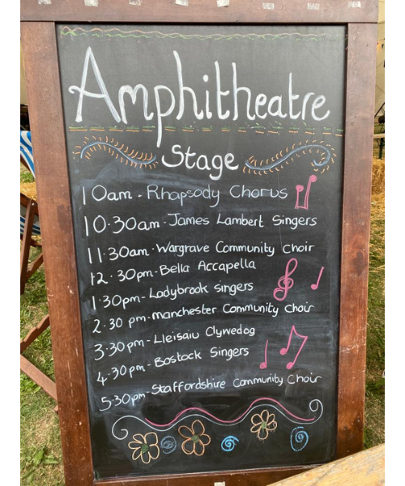 Amphitheatre
Stage
10am - Rhapsody Chorus
10.30am - James Lambert Singers
11.30am - Wargrave Community Choir
12.30pm - Bella Accapella
1.30pm - Ladybrook Singers
2.30pm - manchester Community Choir
3.30pm - Lleisaiu Clywedog
4.30pm - Bostock Singers
5.30pm - Staffordshire Community Choir